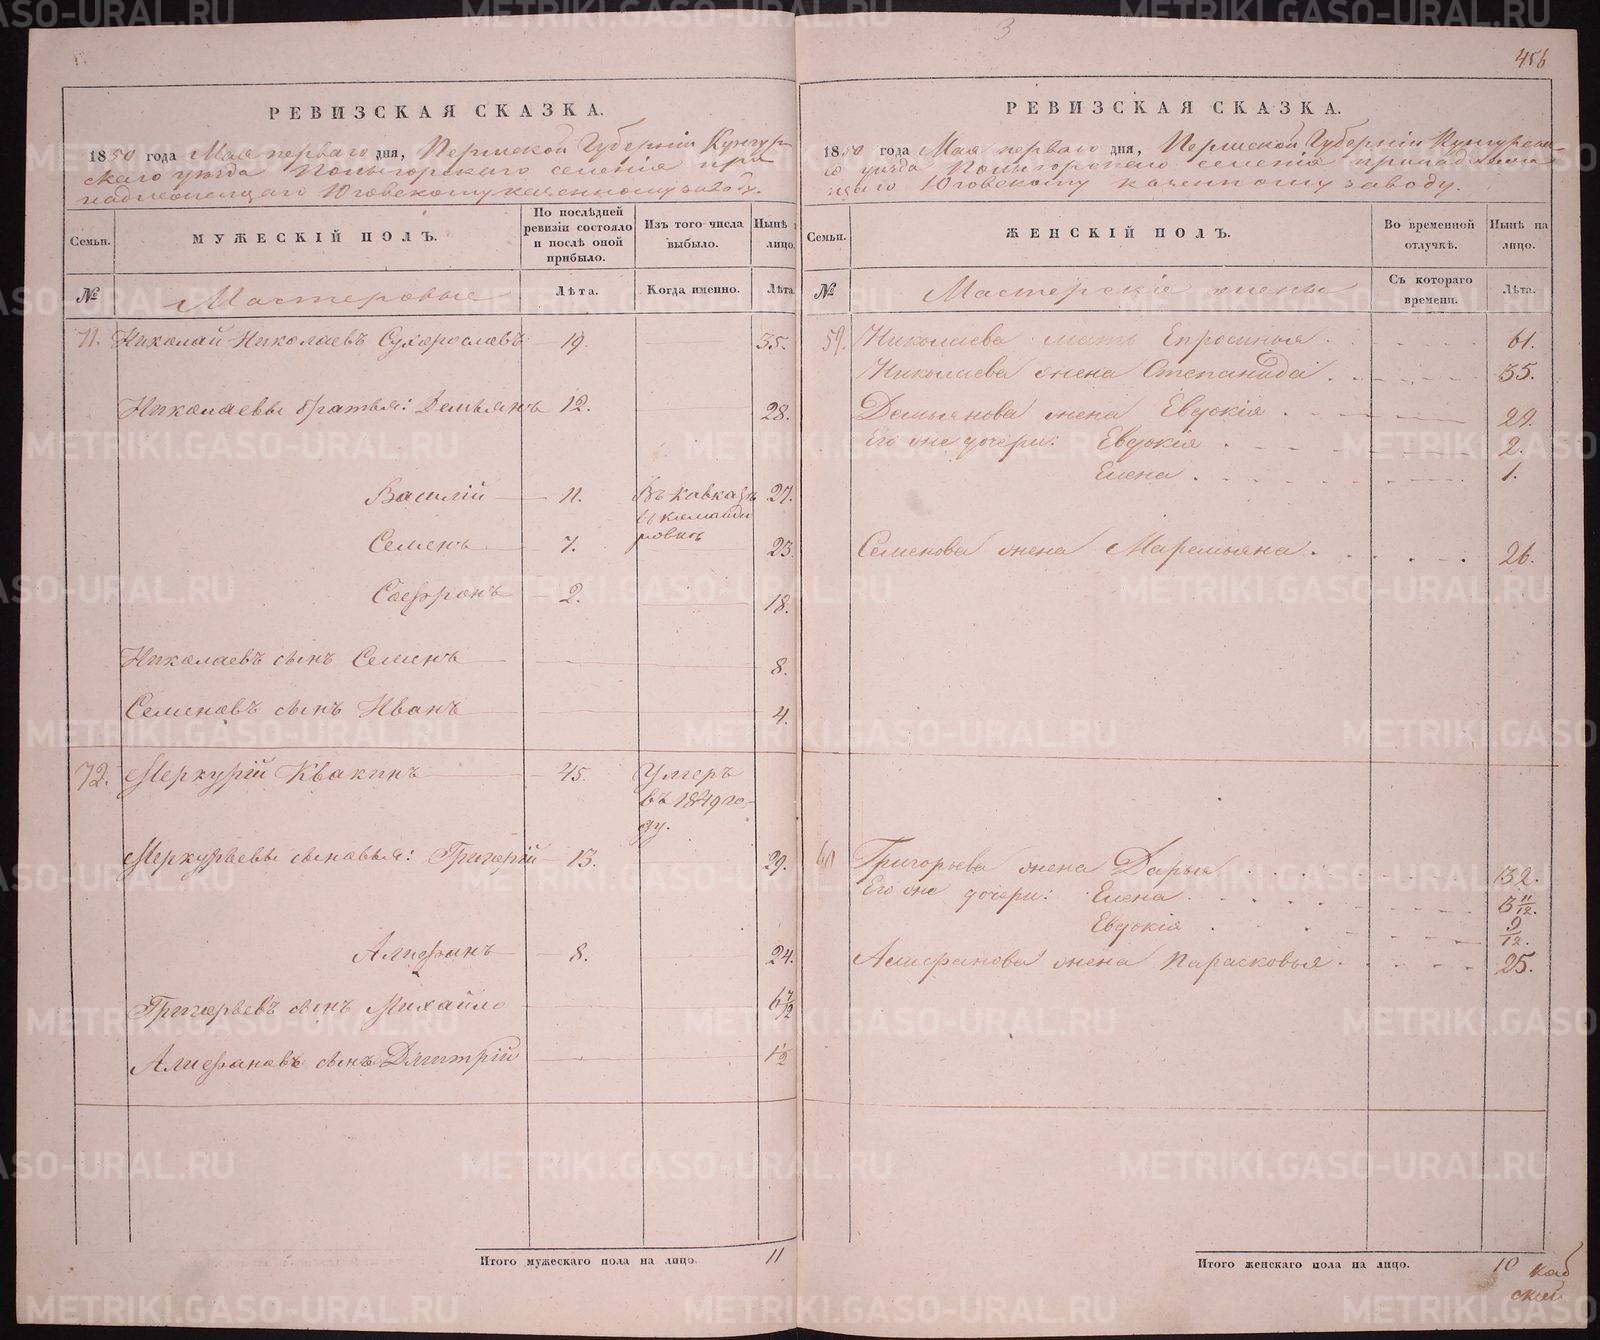 3
456
РЕВИЗСКАЯ СКАЗКА.
1850 года Мая перваго дня, Пермской Губернiи Кунгур-
скаго уѣзда селенiя при
надлежащаго Юговскому казенному заводу.
Семьи.
МУЖЕСКIЙ ПОЛЪ.
По послѣдней
ревизiи состояло
и послѣ оной
прибыло.
Изъ того числа
выбыло.
Нынѣ
лицо.
№
Мастеровые
Лѣта.
Когда именно.
Лѣта
71. Николай Николаевъ 19. 35.
Николаевы братья: Демьянъ 12. 28.
Василiй 11. Въ Кавказъ 27.
въ командировкѣ
Семенъ 7. 23.
Софронъ 2. 18.
Николаевъ сынъ Семенъ 8.
Семеновъ сынъ Иванъ 4.
72. Меркурiй Квакинъ 45. Умеръ
въ 1849 го-
ду.
Меркурьевы сыновья: Григорiй 13. 29.
Алифанъ 8. 24.
Григорьевъ сынъ Михайло 6 7/12
Алифановъ сынъ Дмитрiй 1/2
Итого мужескаго пола на лицо. 11
РЕВИЗСКАЯ СКАЗКА.
1850 года Мая перваго дня, Пермской Губернiи Кунгурска-
го уѣзда селенiя принадлежа
щаго Юговскому казенному заводу.
Семьи.
ЖЕНСКIЙ ПОЛЪ.
Во временной
отлучкѣ.
Нынѣ на
лицо.
№
Мастерскiе жены
Съ котораго
времени.
Лѣта.
59. Николаева мать Епросинья 61.
Николаева жена Степанида 35.
Демьянова жена Евдокiя 29.
Его же дочери: Евдокiя 2.
Елена 1.
Семенова жена Маремьяна 26.
60 Григорьева жена Дарья 32.
Его же дочери: Елена 3 11/12.
Евдокiя 9/12.
Алифанова жена Парасковья 25.
Итого женскаго пола на лицо. 10
METRIKI.GASO-URAL.RU